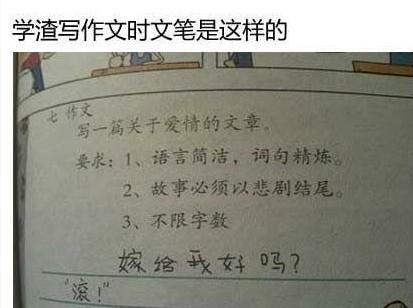 学渣写作文时文笔是这样的
七 作文
写一篇关于爱情的文章。
要求：1、语言简洁，词句精炼。
2、故事必须以悲剧结尾。
3、不限字数
嫁给我好吗？
“滚！”